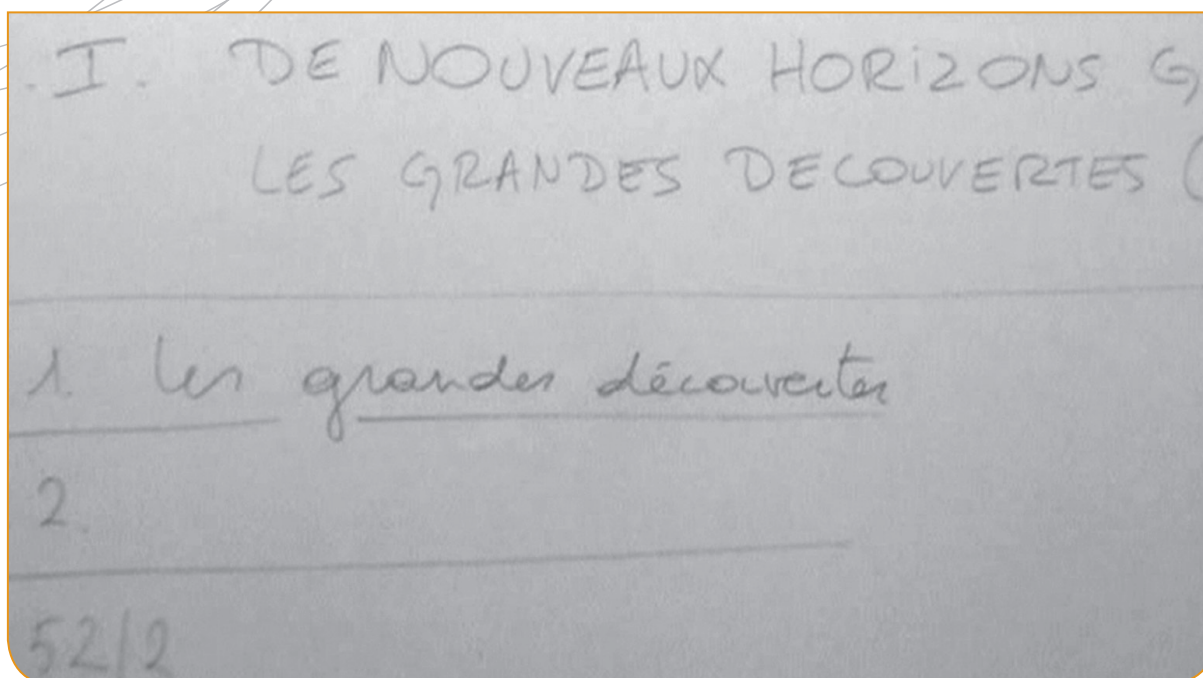 I. DE NOUVEAUX HORIZONS G
LES GRANDES DECOUVERTES (
1. les grandes découvertes
2.
52/2